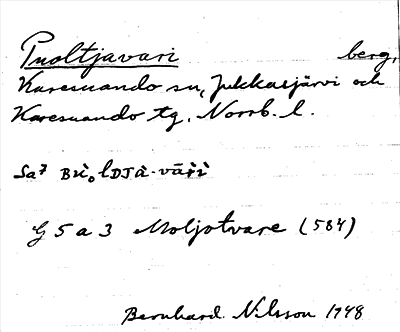 Puoltjavari berg,
Karesuando sn, Jukkasjärvi och
Karesuando tg, Norrb. l.
Sa7
G 5 a 3 Moljotvare (584)
Bernhard Nilsson 1948